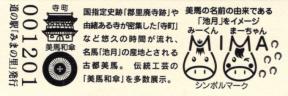 001201
道の駅「みまの里」発行
寺町
美馬和傘
国指定史跡「郡里廃寺跡」や
由緒ある寺が密集した「寺町」
など悠久の時間が流れ、
名馬「池月」の産地とされる
古都美馬。伝統工芸の
「美馬和傘」を多数展示。
美馬の名前の由来である
「池月」をイメージ
みーくん まーちゃん
MIMA
シンボルマーク